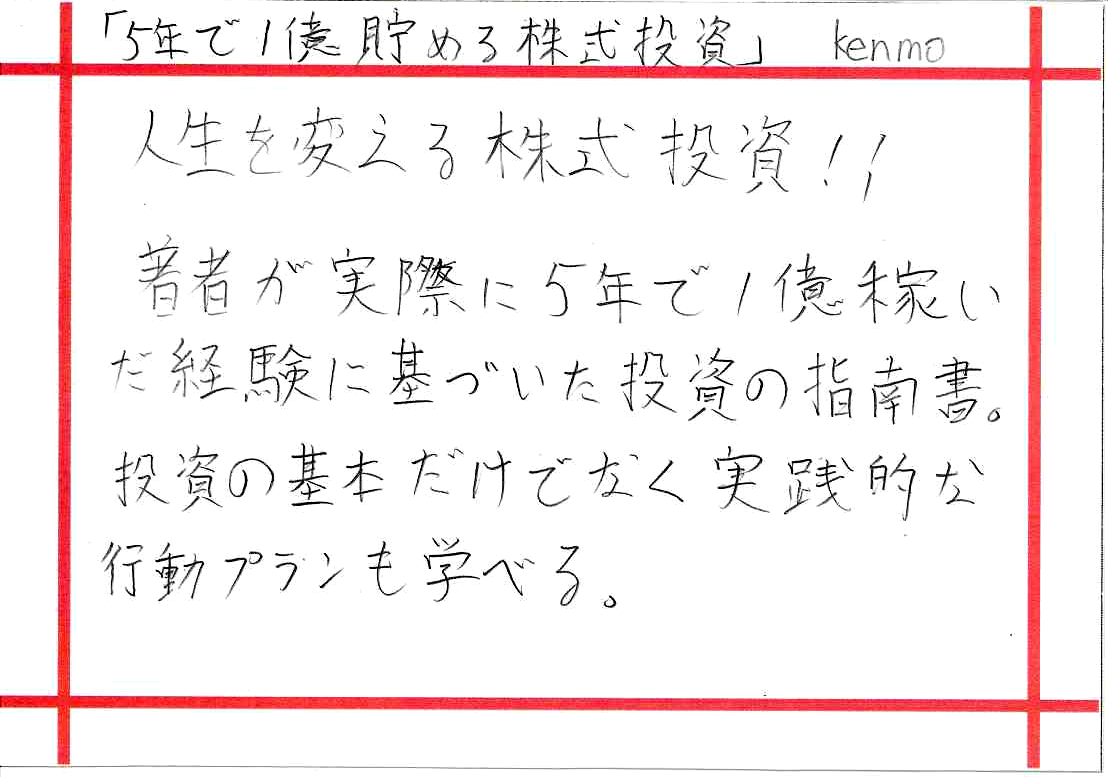 「5年で1億貯める株式投資」 kenmo
人生を変える株式投資!!
著者が実際に5年で1億稼い
だ経験に基づいた投資の指南書。
投資の基本だけでなく実践的な
行動プランも学べる。